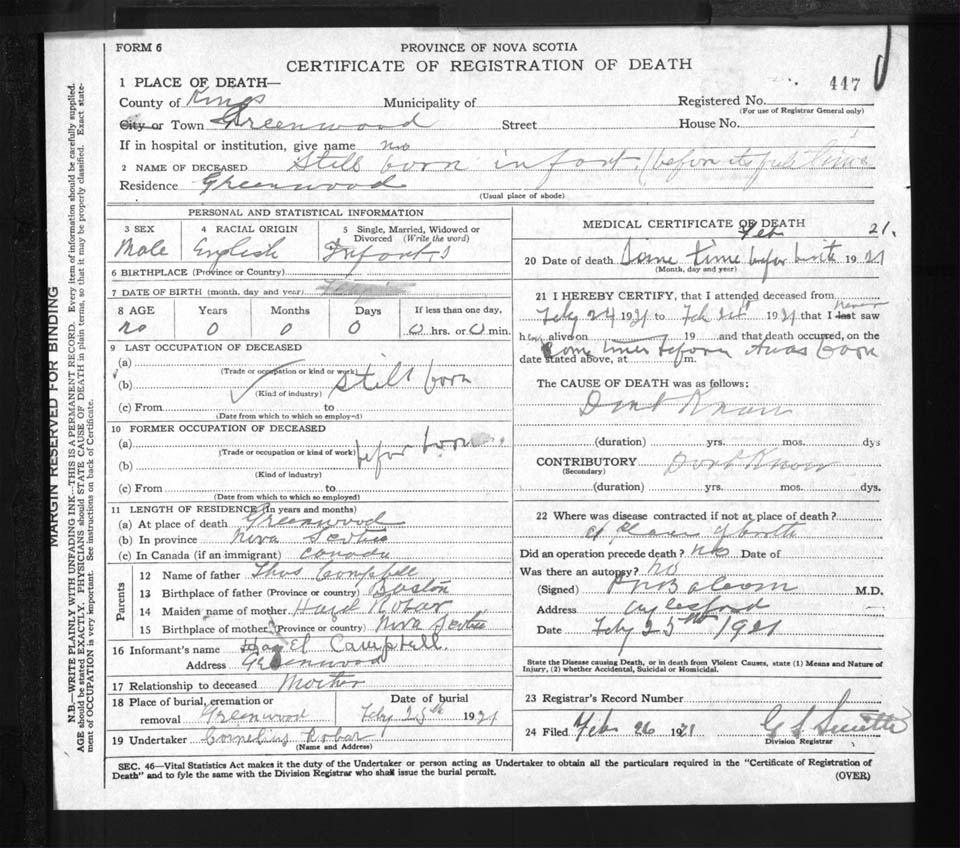 FORM 6
PROVINCE OF NOVA SCOTIA
CERTIFICATE OF REGISTRATION OF DEATH
447
1 PLACE OF DEATH—
County of Kings Municipality of Registered No.
(For use of Registrar General only)
City or Town Greenwood Street House No.
If in hospital or institution, give name no
2 NAME OF DECEASED Still born infant (before its full time
Residence Greenwood
(Usual place of abode)
PERSONAL AND STATISTICAL INFORMATION
3 SEX Male
4 RACIAL ORIGIN English
5 Single, Married, Widowed or Divorced (Write the word)
6 BIRTHPLACE (Province or Country)
7 DATE OF BIRTH (month, day and year)
8 AGE Years Months Days If less than one day,
no 0 0 0 0 hrs. or 0 min.
9 LAST OCCUPATION OF DECEASED
(a)
(Trade or occupation or kind of work)
(b) Still born
(Kind of industry)
(c) From to
(Date from which to which so employed)
10 FORMER OCCUPATION OF DECEASED
(a)
(Trade or occupation or kind of work)
befor born
(b)
(Kind of industry)
(c) From to
(Date from which to which so employed)
11 LENGTH OF RESIDENCE (In years and months)
(a) At place of death Greenwood
(b) In province Nova Scotia
(c) In Canada (if an immigrant) Canada
Parents
12 Name of father Thos Campbell
13 Birthplace of father (Province or country) Boston
14 Maiden name of mother Hazel Robar
15 Birthplace of mother (Province or country) Nova Scotia
16 Informant's name Hazel Campbell.
Address Greenwood
17 Relationship to deceased Mother
18 Place of burial, cremation or removal Greenwood
Date of burial Feby 25th 1921
19 Undertaker Cornelius Robar
(Name and Address)
MEDICAL CERTIFICATE OF DEATH
Feb 21.
20 Date of death Some time befor birth 1921
(Month, day and year)
21 I HEREBY CERTIFY, that I attended deceased from
Feby 24 1921 to Feb 24th 1921 that I last never saw
h alive on 19 and that death occurred, on the
date stated above, at m. born
The CAUSE OF DEATH was as follows:
Dont Know
(duration) yrs. mos. dys
CONTRIBUTORY Dont Know
(Secondary)
(duration) yrs. mos. dys.
22 Where was disease contracted if not at place of death?
at Place of birth
Did an operation precede death? No Date of
Was there an autopsy? No
(Signed) M.D.
Address Aylesford
Date Feby 25th 1921
State the Disease causing Death, or in death from Violent Causes, state (1) Means and Nature of
Injury, (2) whether Accidental, Suicidal or Homicidal.
23 Registrar's Record Number
24 Filed Feb 26 1921 G S Smith
Division Registrar
SEC. 46—Vital Statistics Act makes it the duty of the Undertaker or person acting as Undertaker to obtain all the particulars required in the "Certificate of Registration of
Death" and to fyle the same with the Division Registrar who shall issue the burial permit.
(OVER)
MARGIN RESERVED FOR BINDING
N.B.—WRITE PLAINLY WITH UNFADING INK—THIS IS A PERMANENT RECORD. Every item of information should be carefully supplied.
AGE should be stated EXACTLY. PHYSICIANS should STATE CAUSE OF DEATH in plain terms, so that it may be properly classified. Exact state-
ment of OCCUPATION is very important. See instructions on back of Certificate.